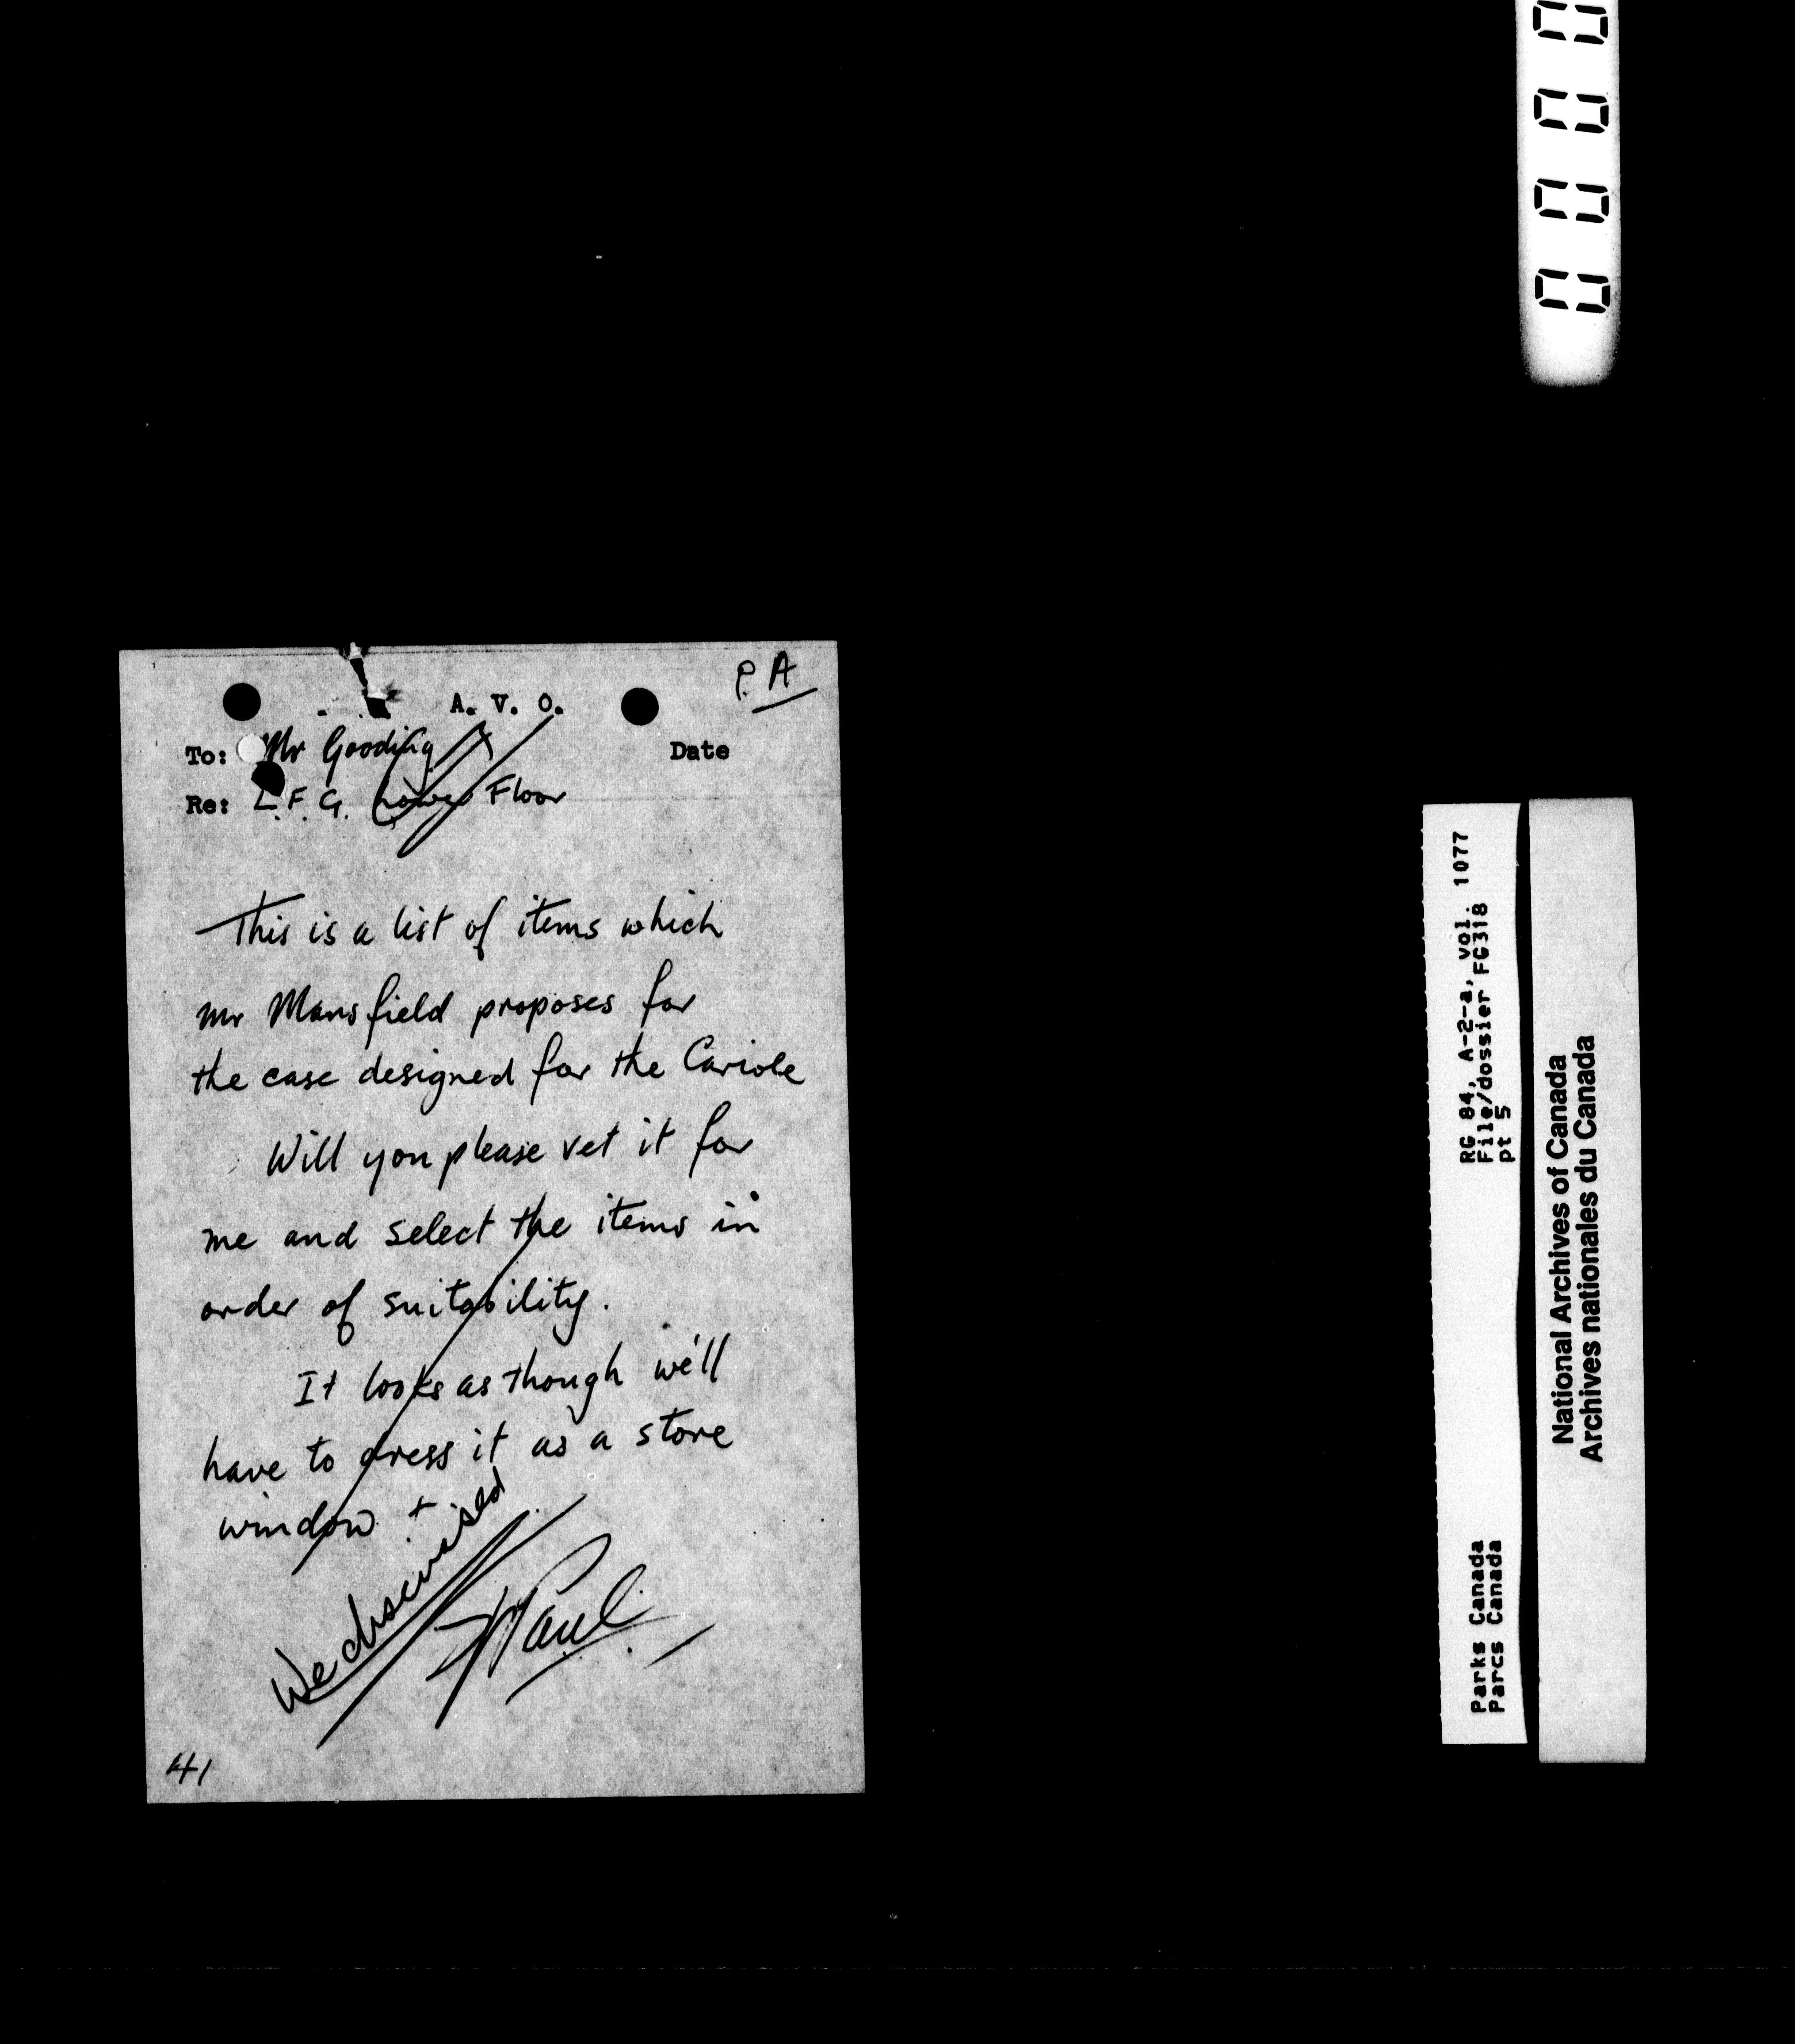 P.A
A. V. O.
To: Mr Gooding
Date
Re: L.F.G. Lower Floor
This is a list of items which
Mr Mansfield proposes for
the case designed for the Cariole
Will you please vet it for
me and select the items in
order of suitability.
It looks as though we'll
have to dress it as a store
window
We
Paul
41
0000
RG 84, A-2-a, vol. 1077
File/dossier FG318
pt 5
Parks Canada
Parcs Canada
National Archives of Canada
Archives nationales du Canada